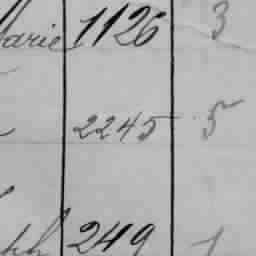 Marie 1126 3
2245 5
ph 249 1